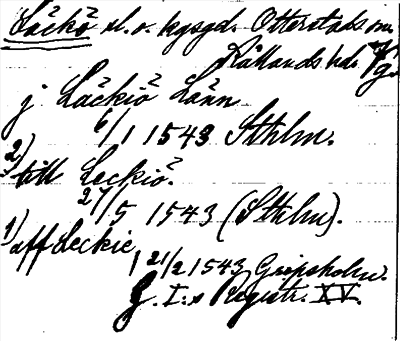 Läckö sl. o. kgsgd. Otterstads sn
Kållands hd. Vg.
j Läckiö Länn
6/1 1543 Sthlm.
2) till Leckiö.
21/5 1543 (Sthlm).
1) aff Leckie,
21/2 1543 Gripsholm.
G. I:s Registr. XV.